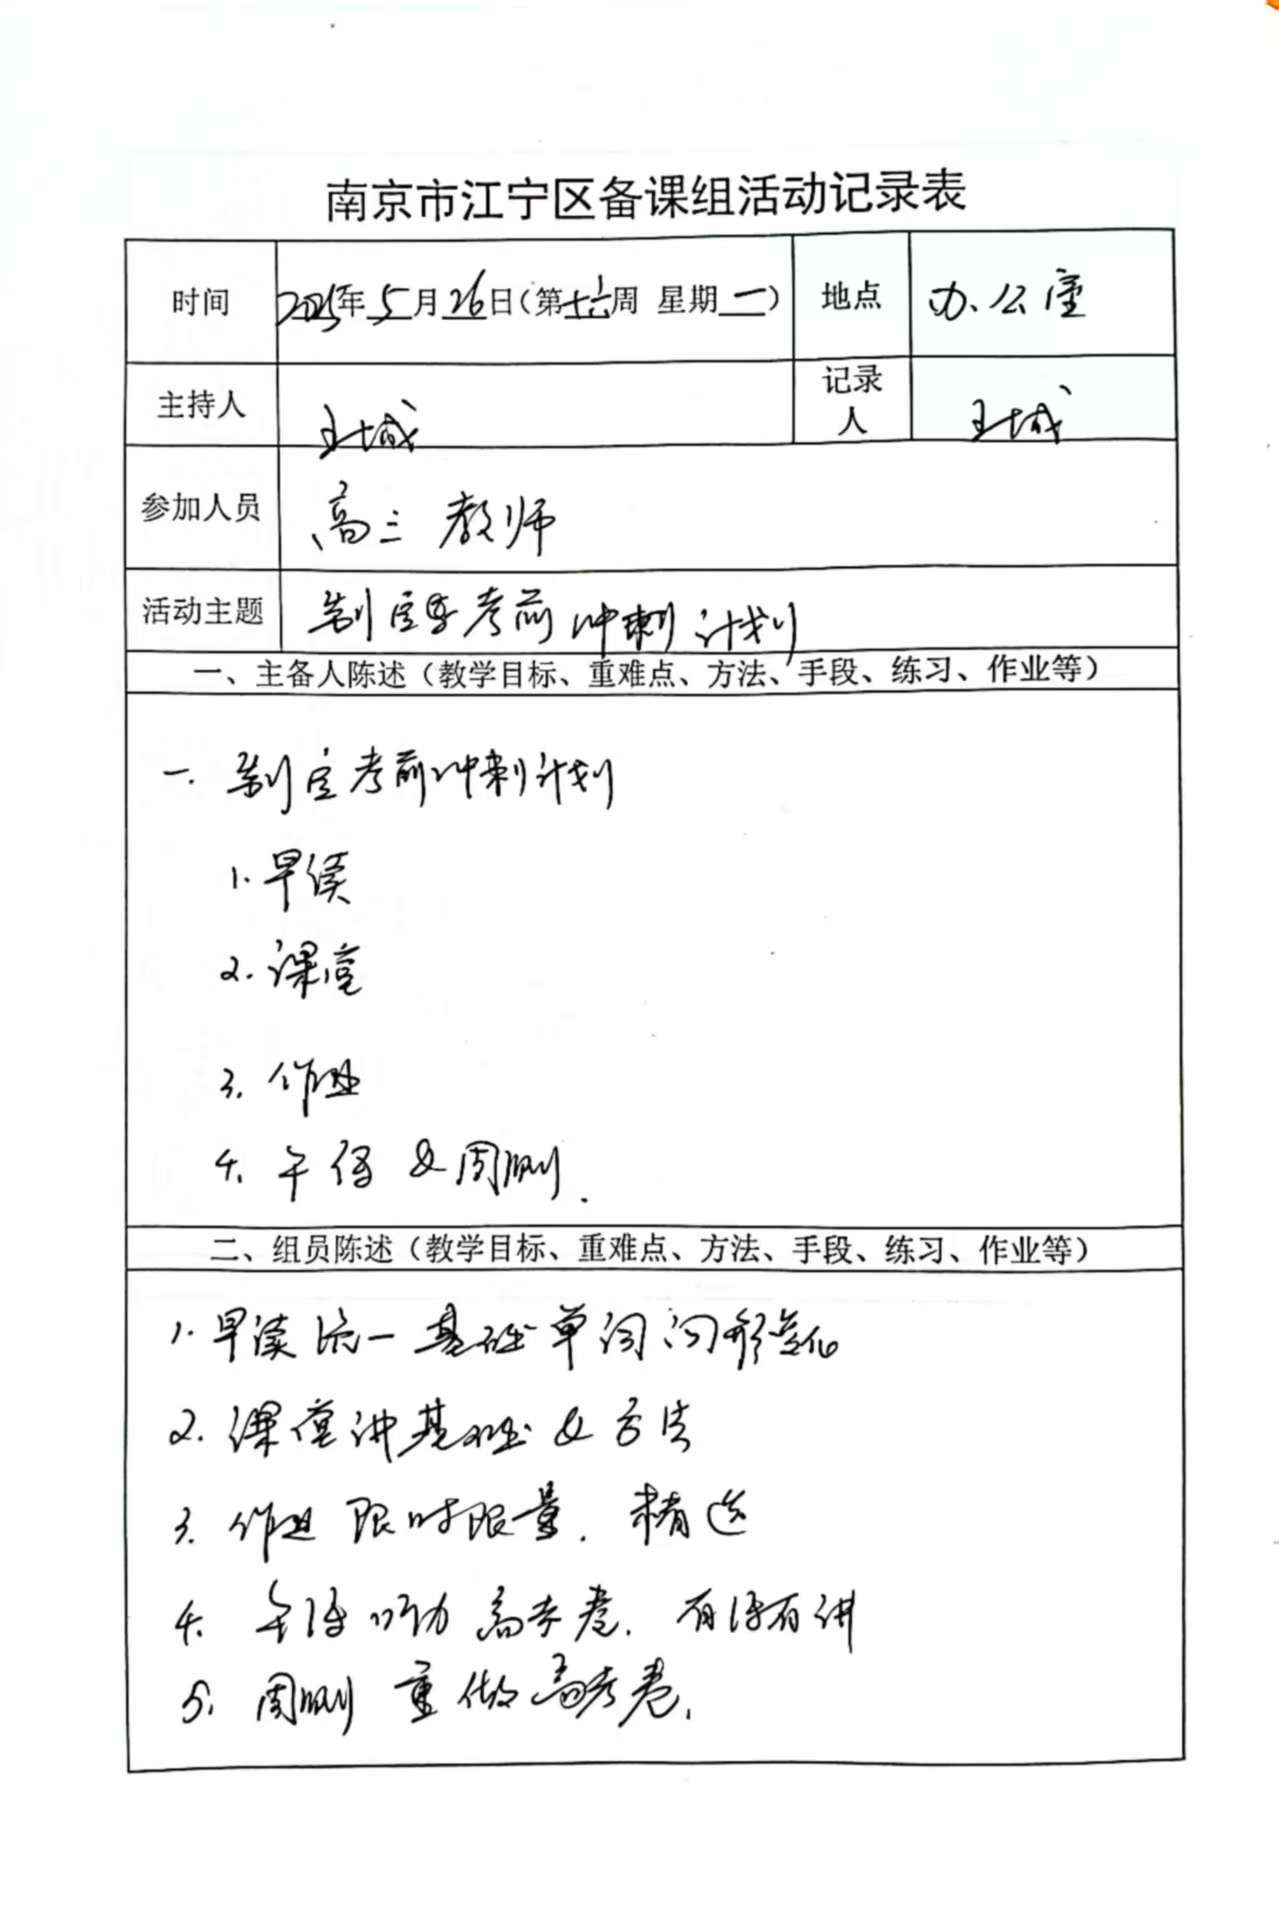 南京市江宁区备课组活动记录表
时间 2025年5月26日(第十六周 星期一) 地点 办公室
主持人 王城 记录人 王城
参加人员 高三 教师
活动主题 制定 考前冲刺计划
一、主备人陈述(教学目标、重难点、方法、手段、练习、作业等)
一. 制定考前冲刺计划
1. 早读
2. 课堂
3. 作业
4. 午 & 周测.
二、组员陈述(教学目标、重难点、方法、手段、练习、作业等)
1. 早读 统一 基础 单词 词形变化
2. 课堂讲基础 & 方法
3. 作业 限时限量. 精选
4. 午 高考卷. 有 有讲
5. 周测 重做高考卷.